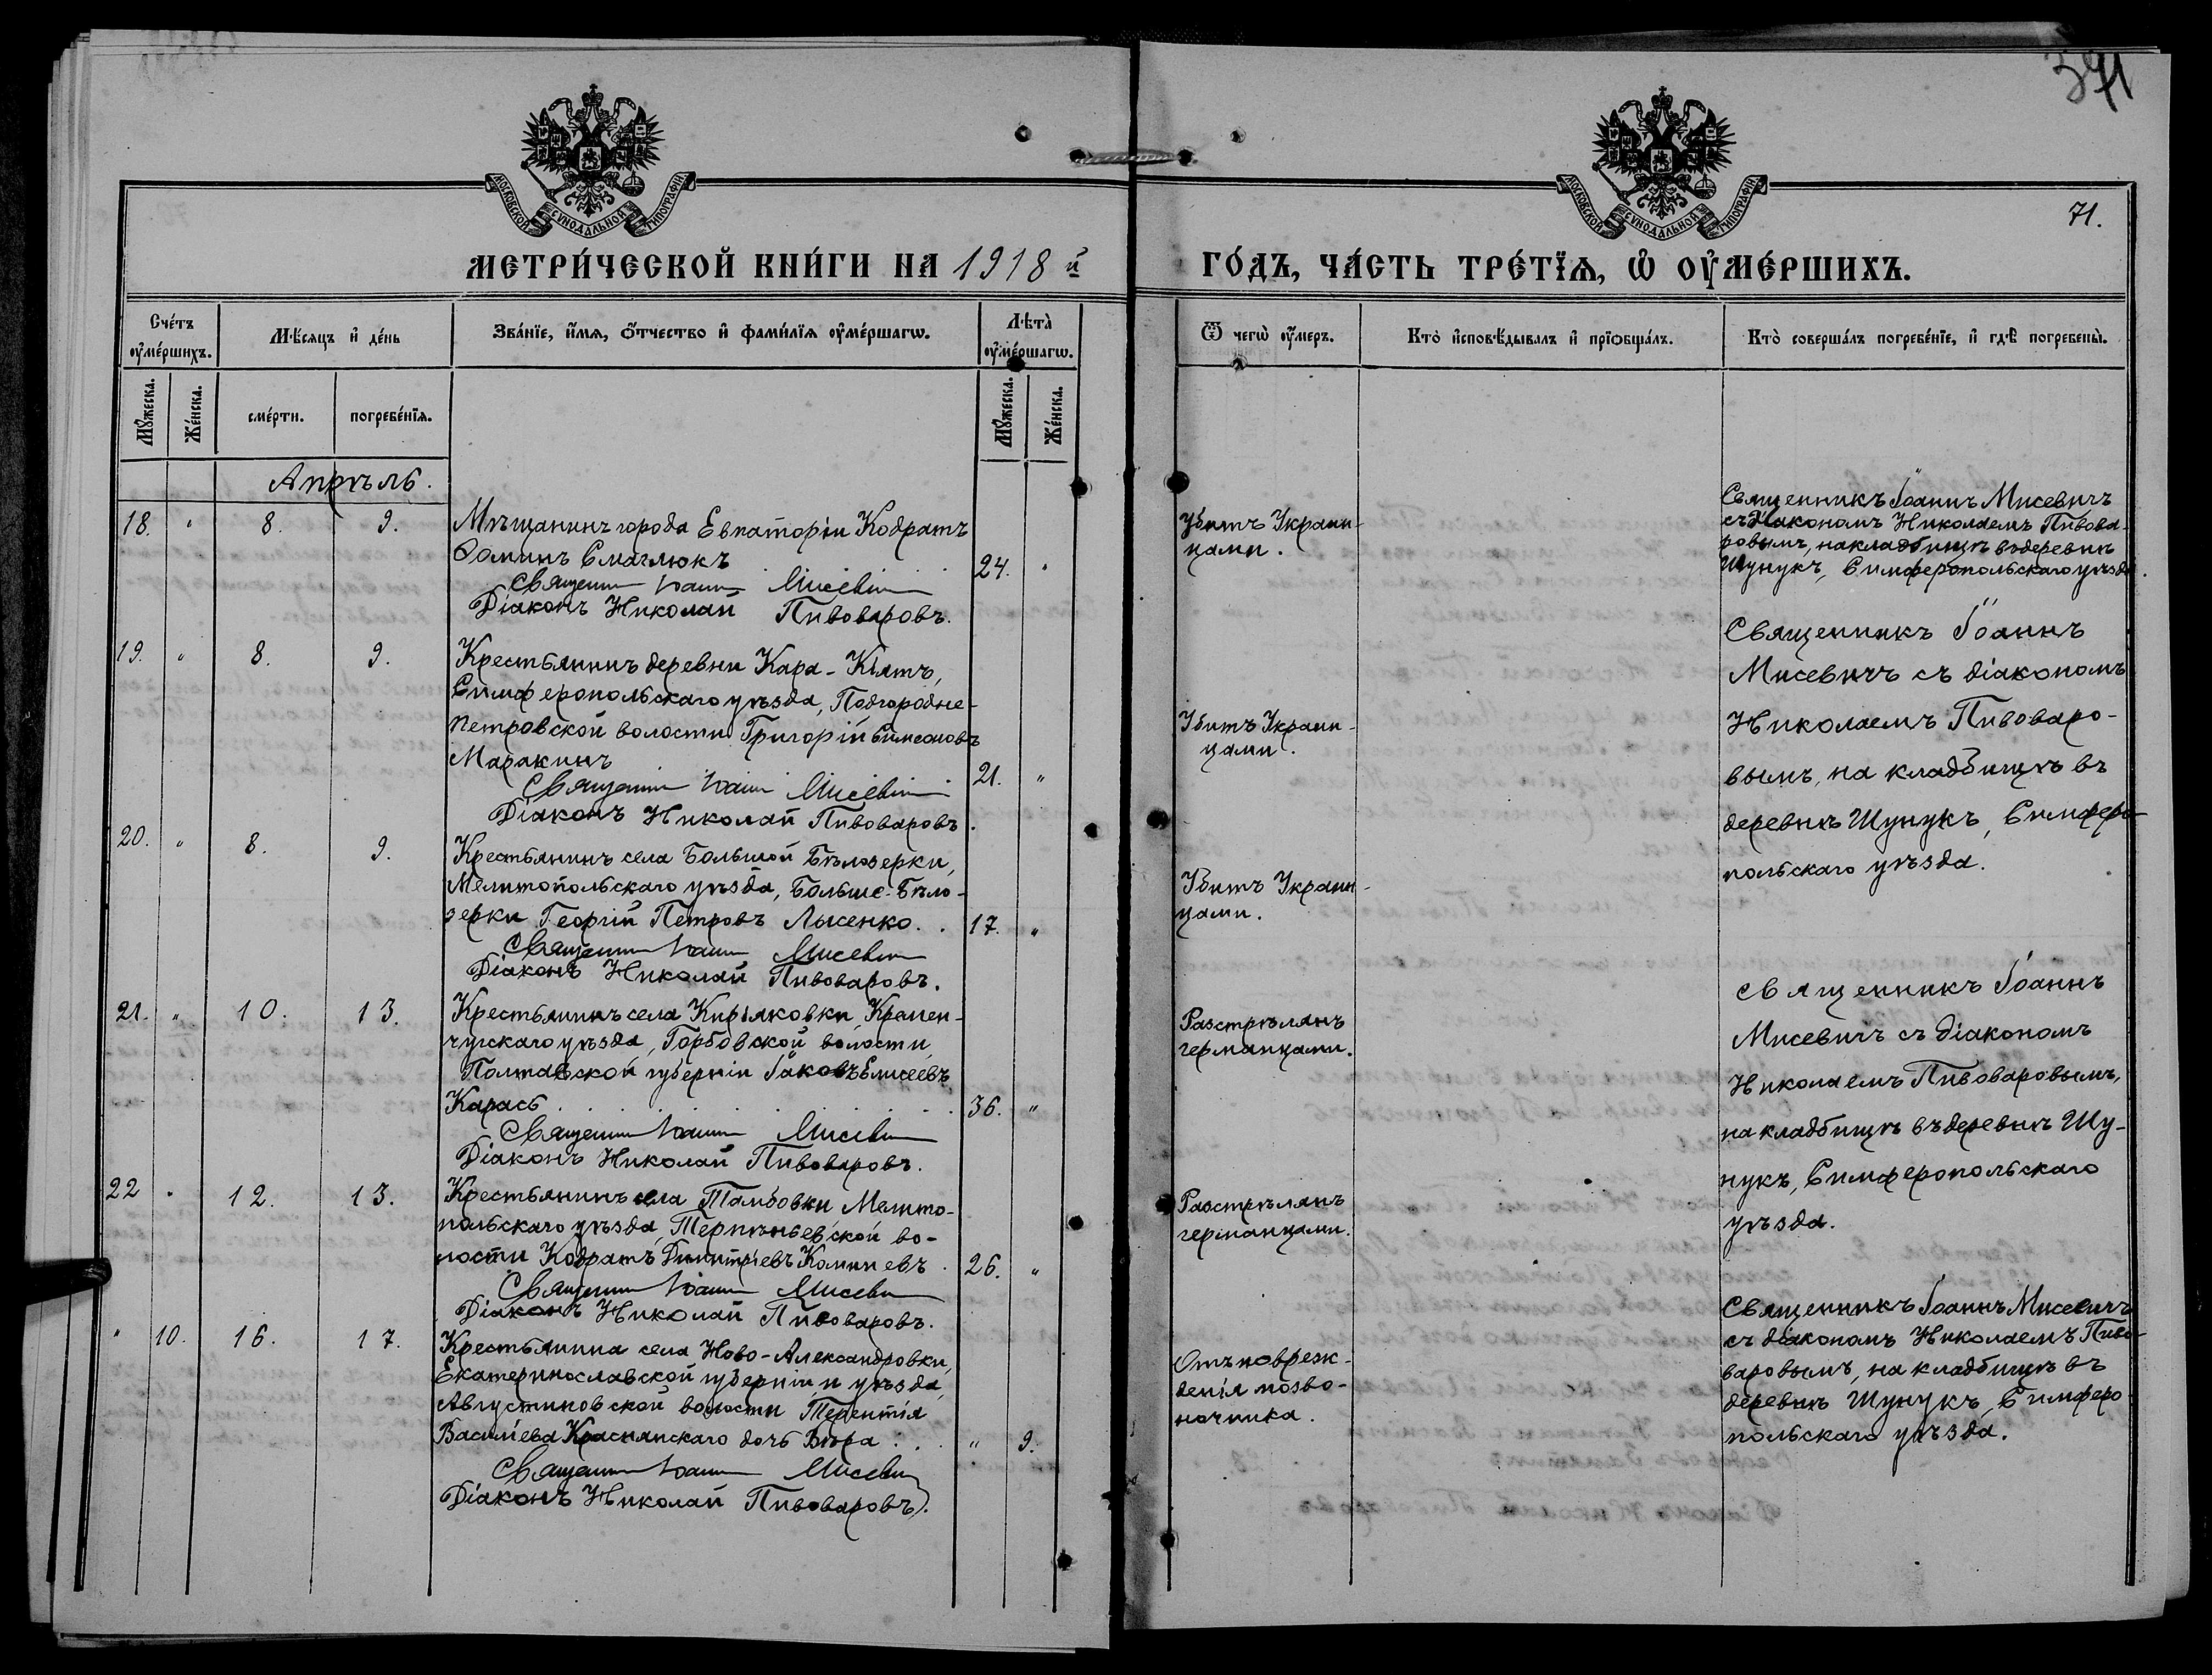 371
МОСКОВСКОЙ СѴНОДАЛЬНОЙ ТИПОГРАФІИ
МОСКОВСКОЙ СѴНОДАЛЬНОЙ ТИПОГРАФІИ
71.
МЕТРИ́ЧЕСКОЙ КНИ́ГИ НА 1918 й
ГО́ДЪ, ЧА́СТЬ ТРЕ́ТІЯ, Ѡ ОУМЕ́РШИХЪ.
Сче́тъ оуме́ршихъ.
Мѣ́сяцъ и де́нь
Зва́нїе, и́мя, о́тчество и фами́лїя оуме́ршагѡ.
Лѣта̀ оуме́ршагѡ.
Ѿ чегѡ̀ оу́меръ.
Кто̀ исповѣ́дывалъ и прїобща́лъ.
Кто̀ соверша́лъ погребе́нїе, и гдѣ̀ погребены̀.
Му́жеска.
Же́нска.
сме́рти.
погребе́нїя.
Му́жеска.
Же́нска.
Апрѣль.
18. " 8. 9. Мѣщанинъ города Евпаторіи Кодратъ
Ѳоминъ Смаглюкъ 24. "
Священникъ Іоаннъ Мисевичъ
Діаконъ Николай Пивоваровъ.
Убитъ Украин-
цами.
Священникъ Іоаннъ Мисевичъ
съ діакономъ Николаемъ Пивова-
ровымъ, на кладбищѣ въ деревнѣ
Шунукъ, Симферопольскаго уѣзда.
19. " 8. 9. Крестьянинъ деревни Кара-Кіятъ,
Симферопольскаго уѣзда, Подгородне-
Петровской волости Григорій Симеоновъ
Маракинъ 21. "
Священникъ Іоаннъ Мисевичъ
Діаконъ Николай Пивоваровъ.
Убитъ Украин-
цами.
Священникъ Іоаннъ
Мисевичъ съ діакономъ
Николаемъ Пивоваро-
вымъ, на кладбищѣ въ
деревнѣ Шунукъ, Симферо-
польскаго уѣзда.
20. " 8. 9. Крестьянинъ села Большой Бѣлозерки,
Мелитопольскаго уѣзда, Больше-Бѣло-
зерки Георгій Петровъ Лысенко. . 17. "
Священникъ Іоаннъ Мисевичъ
Діаконъ Николай Пивоваровъ.
Убитъ Украин-
цами.
21. " 10. 13. Крестьянинъ села Кирьяковки, Кремен-
чугскаго уѣзда, Горбовской волости,
Полтавской губерніи Іаковъ Елисеевъ
Карась . . . . . . . 36. "
Священникъ Іоаннъ Мисевичъ
Діаконъ Николай Пивоваровъ.
Разстрѣлянъ
германцами.
Священникъ Іоаннъ
Мисевичъ съ діакономъ
Николаемъ Пивоваровымъ,
на кладбищѣ въ деревнѣ Шу-
нукъ, Симферопольскаго
уѣзда.
22 " 12. 13. Крестьянинъ села Тамбовки Мелито-
польскаго уѣзда, Терпѣньевской во-
лости Кодратъ Димитріевъ 26. "
Священникъ Іоаннъ Мисевичъ
Діаконъ Николай Пивоваровъ.
Разстрѣлянъ
германцами.
" 10. 16. 17. Крестьянина села Ново-Александровки,
Екатеринославской губерніи и уѣзда,
Августиновской волости Терентія
Василіева Краснянскаго дочь Вѣра . . . " 9.
Священникъ Іоаннъ Мисевичъ
Діаконъ Николай Пивоваровъ.
Отъ повреж-
денія позво-
ночника.
Священникъ Іоаннъ Мисевичъ
съ діакономъ Николаемъ Пиво-
варовымъ, на кладбищѣ въ
деревнѣ Шунукъ, Симферо-
польскаго уѣзда.